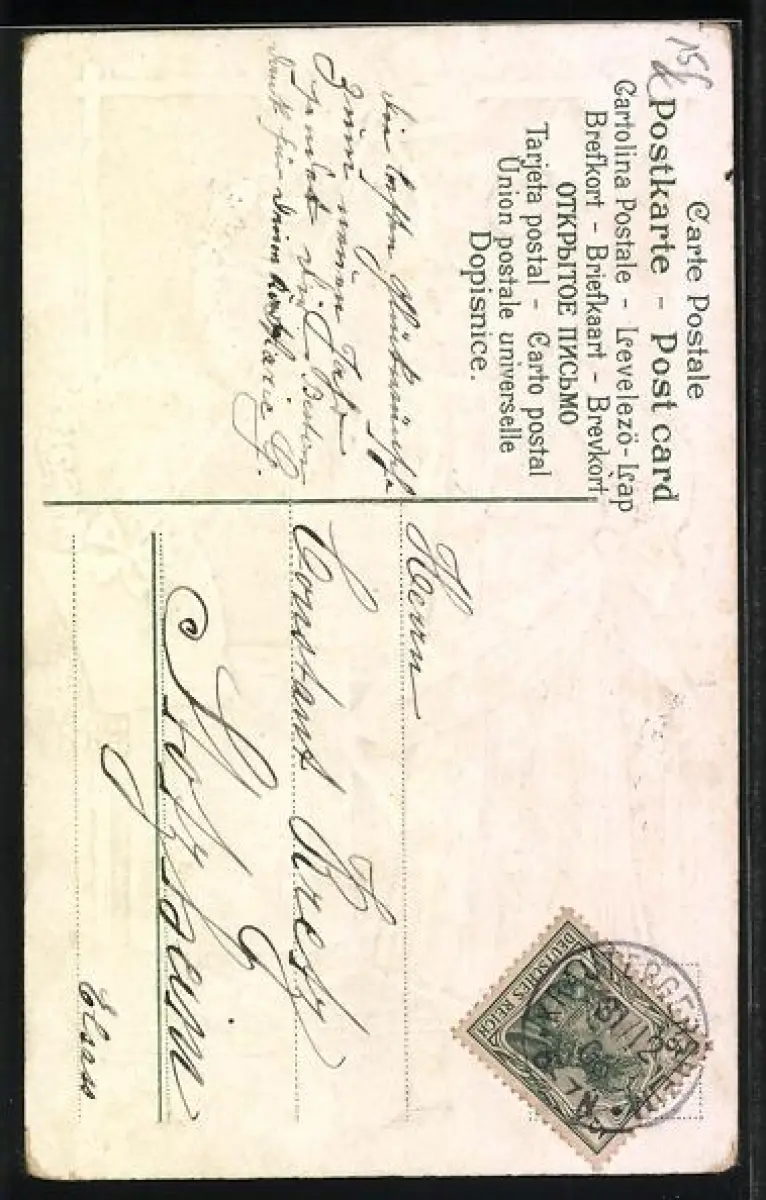 Carte Postale
Postkarte - Post card
Cartolina Postale - Levelező-Lap
Brefkort - Briefkaart - Brevkort
ОТКРЫТОЕ ПИСЬМО
Tarjeta postal - Carto postal
Union postale universelle
Dopisnice.
Die besten Glückwünsche
Zum neuen Jahr
sendet Dir
Dank für Deine
Herrn
Constant Kretz
Elsass
DEUTSCHES REICH
31/12